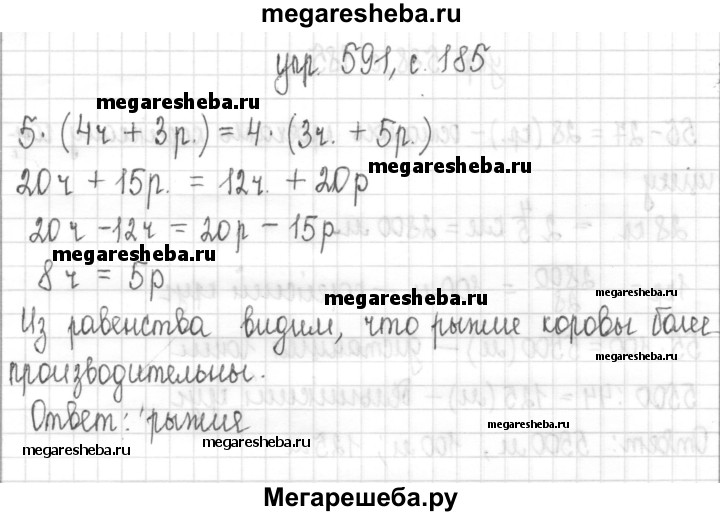 megaresheba.ru
упр. 591, с. 185
megaresheba.ru
5·(4ч + 3р.) = 4·(3ч. + 5р.)
megaresheba.ru
20ч + 15р. = 12ч. + 20р
20ч - 12ч = 20р - 15р
megaresheba.ru
8ч = 5р
megaresheba.ru
megaresheba.ru
Из равенства видим, что рыжие коровы более
megaresheba.ru
производительны.
Ответ: рыжие
megaresheba.ru
megaresheba.ru
megaresheba.ru
Мегарешеба.ру